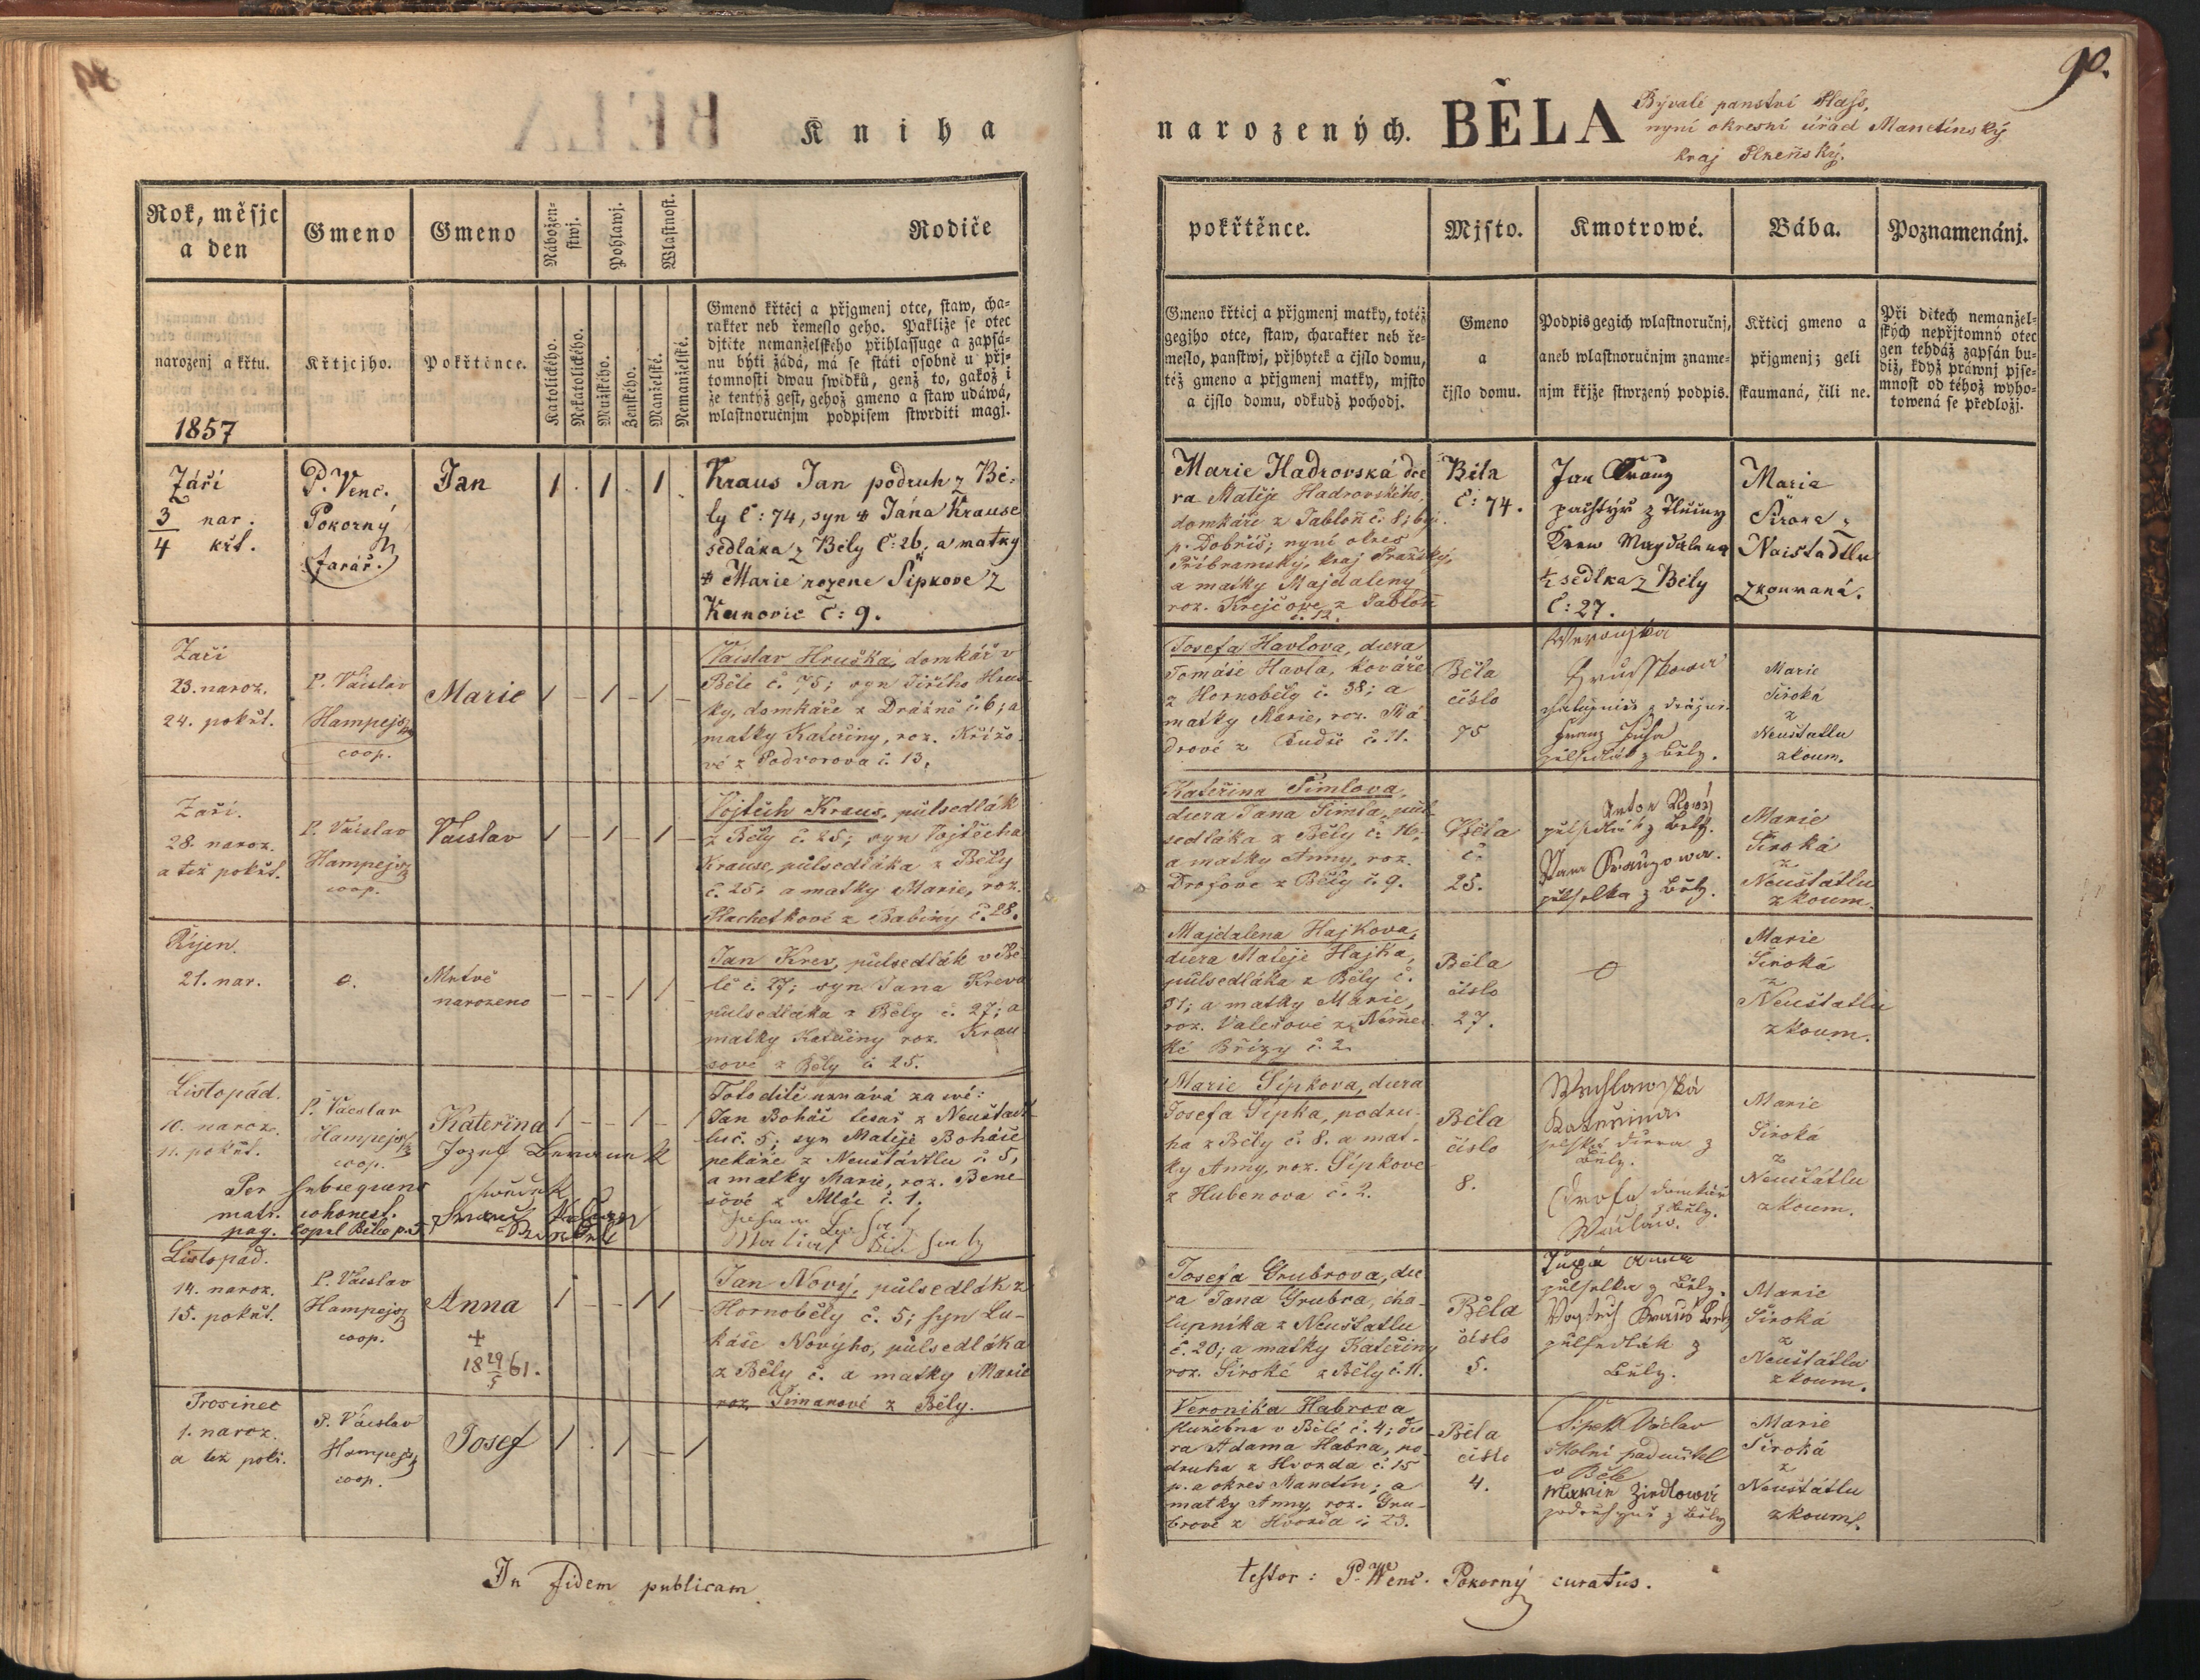 90.
Kniha
narozených. BĚLA
Bývalé panství Plass,
nyní okresní úřad Manetínský
kraj Plzeňský.
Rok, měsjc
a den
Gmeno
Gmeno
Nábožen-
stwj.
Pohlawj.
Wlastnost.
Rodiče
narozenj a křtu.
1857
Křtjcjho.
Pokřtěnce.
Katolického.
Nekatolického.
Mužského.
Ženského.
Manželské.
Nemanželské.
Gmeno křtěcj a přjgmenj otce, staw, cha-
rakter neb řemeslo geho. Pakliže se otec
djtěte nemanželského přihlassuge a zapsá-
nu býti žádá, má se státi osobně u přj-
tomnosti dwau swědků, genž to, gakož i
že tentýž gest, gehož gmeno a staw udáwá,
wlastnoručnjm podpisem stwrditi magj.
Září
3 nar.
4 křt.
P. Venc.
Pokorný
farář.
Jan
1 . 1 . 1 .
Kraus Jan podruh z Bě-
ly č: 74, syn Jána Krause
sedláka z Běly č: 26, a matky
Marie rozene Šipkove z
Kunovic č: 9.
Září
23. naroz.
24. pokřt.
P. Václav
Hampejs
coop.
Marie
1 – 1 – 1 –
Václav Hruška, domkář v
Běle č. 75; syn Jiřího Hruš-
ky, domkáře z Dražně č. 6; a
matky Kateřiny, roz. Křížo-
vé z Podvorova č. 13.
Září.
28. naroz.
a též pokřt.
P. Václav
Hampejs
coop.
Václav
1 – 1 – 1 –
Vojtěch Kraus, půlsedlák
z Běly č. 25; syn Vojtěcha
Krause, půlsedláka z Běly
č. 25; a matky Marie, roz.
Plachetkové z Babiny č. 28.
Říjen.
21. nar.
0.
Mrtvě
narozeno
– – – 1 1 –
Jan Krev, půlsedlák v Bě-
lé č. 27; syn Jana Kreva
půlsedláka z Běly č. 27; a
matky Kateřiny roz. Krau-
sové z Běly č. 25.
Listopád.
10. naroz.
11. pokřt.
P. Václav
Hampejs
coop.
Kateřina
1 – – 1 – 1
Toto dítě uznává za své:
Jan Boháč tesař z Neustadt-
lu č. 5; syn Matěje Boháče
pekáře z Neustádtlu č. 5,
a matky Marie, roz. Bene-
šové z Mlác č. 1.
Jozef
Per subsequens
matr. cohonest.
pag.
Listopád.
14. naroz.
15. pokřt.
P. Václav
Hampejs
coop.
Anna
+
18 29/5 61.
1 – – 1 1 –
Jan Nový, půlsedlák z
Hornoběly č. 5; syn Lu-
káše Novýho, půlsedláka
z Běly č. a matky Marie
roz. Šimanové z Běly.
Prosinec
1. naroz.
a též pokř.
P. Václav
Hampejs
coop.
Josef
1 . 1 – – 1
In fidem publicam
pokřtěnce.
Mjsto.
Kmotrowé.
Bába.
Poznamenánj.
Gmeno křticj a přjgmenj matky, totéž
gegjho otce, staw, charakter neb ře-
meslo, panstwj, přjbytek a čjslo domu,
též gmeno a přjgmenj matky, mjsto
a čjslo domu, odkudž pochodj.
Gmeno
a
čjslo domu.
Podpis gegich wlastnoručnj,
aneb wlastnoručnjm zname-
njm křjže stwrzený podpis.
Křticj gmeno a
přjgmenj; geli
skaumaná, čili ne.
Při ditech nemanžel-
ských nepřjtomný otec
gen tehdáž zapsán bu-
diž, když práwnj pjse-
mnost od téhož wyho-
towená se předložj.
Marie Hadrovská dce
ra Matěje Hadrovského,
domkáře z Jabloň č: 8; býv.
p. Dobříš; nyní okres
Příbramský, kraj Pražský,
a matky Majdaleny
roz. Krejčove z Jabloň
č. 12.
Běla
č: 74.
Jan
pachtýř z
Krew Magdalena
1/2 sedlka z Běly
č: 27.
Maria
Široka z
Naistadtlu
zkoumaná.
Josefa Havlova, dcera
Tomáše Havla, kováře
z Hornoběly č. 38; a
matky Marie, roz. Má-
drové z č. 11.
Běla
číslo
75
Marie
Široká
z
Neustatlu
zkoum.
Kateřina Šimlova,
dcera Jana Šimla, půl-
sedláka z Běly č. 16;
a matky Anny, roz.
Drofove z Běly č. 9.
Běla
č.
25.
Anton Nový
půlsedlák z Běly.
půlselka z Běly.
Marie
Široká
z
Neustátlu
zkoum.
Majdalena Hajkova,
dcera Matěje Hajka,
půlsedláka z Běly č.
31; a matky Marie,
roz. Valešové z Němec-
ké Břízy č. 2.
Běla
číslo
27.
0
Marie
Široká
z
Neustatlu
zkoum.
Marie Šípkova, dcera
Josefa Šípka, podru-
ha z Běly č. 8. a mat-
ky Anny, roz. Šípkove
z Hubenova č. 2.
Běla
číslo
8.
Kateřina
selská dcera z
Běly.
Drofa domkář
z Běly.
Wáclaw.
Marie
Široká
z
Neustátlu
zkoum.
Josefa Grubrova, dce
ra Jana Grubra, cha-
lupníka z Neustatlu
č. 20; a matky Kateřiny
roz. Široké z Běly č. 11.
Běla
číslo
5.
Anna
půlselka z Běly.
půlsedlák z
Běly.
Marie
Široká
z
Neustátlu
zkoum.
Veronika Habrova
služebna v Bělé č. 4; dce
ra Adama Habra, po-
druha z Hvozda č. 15
p. a okres Manetín; a
matky Anny, roz. Gru-
brové z Hvozda č. 23.
Běla
číslo
4.
Šípek Václav
školní padučitel
v Běle
Marie
podruhyně z Běly
Marie
Široká
z
Neustátlu
zkoum.
testor: P. Wenc. Pokorný curatus.